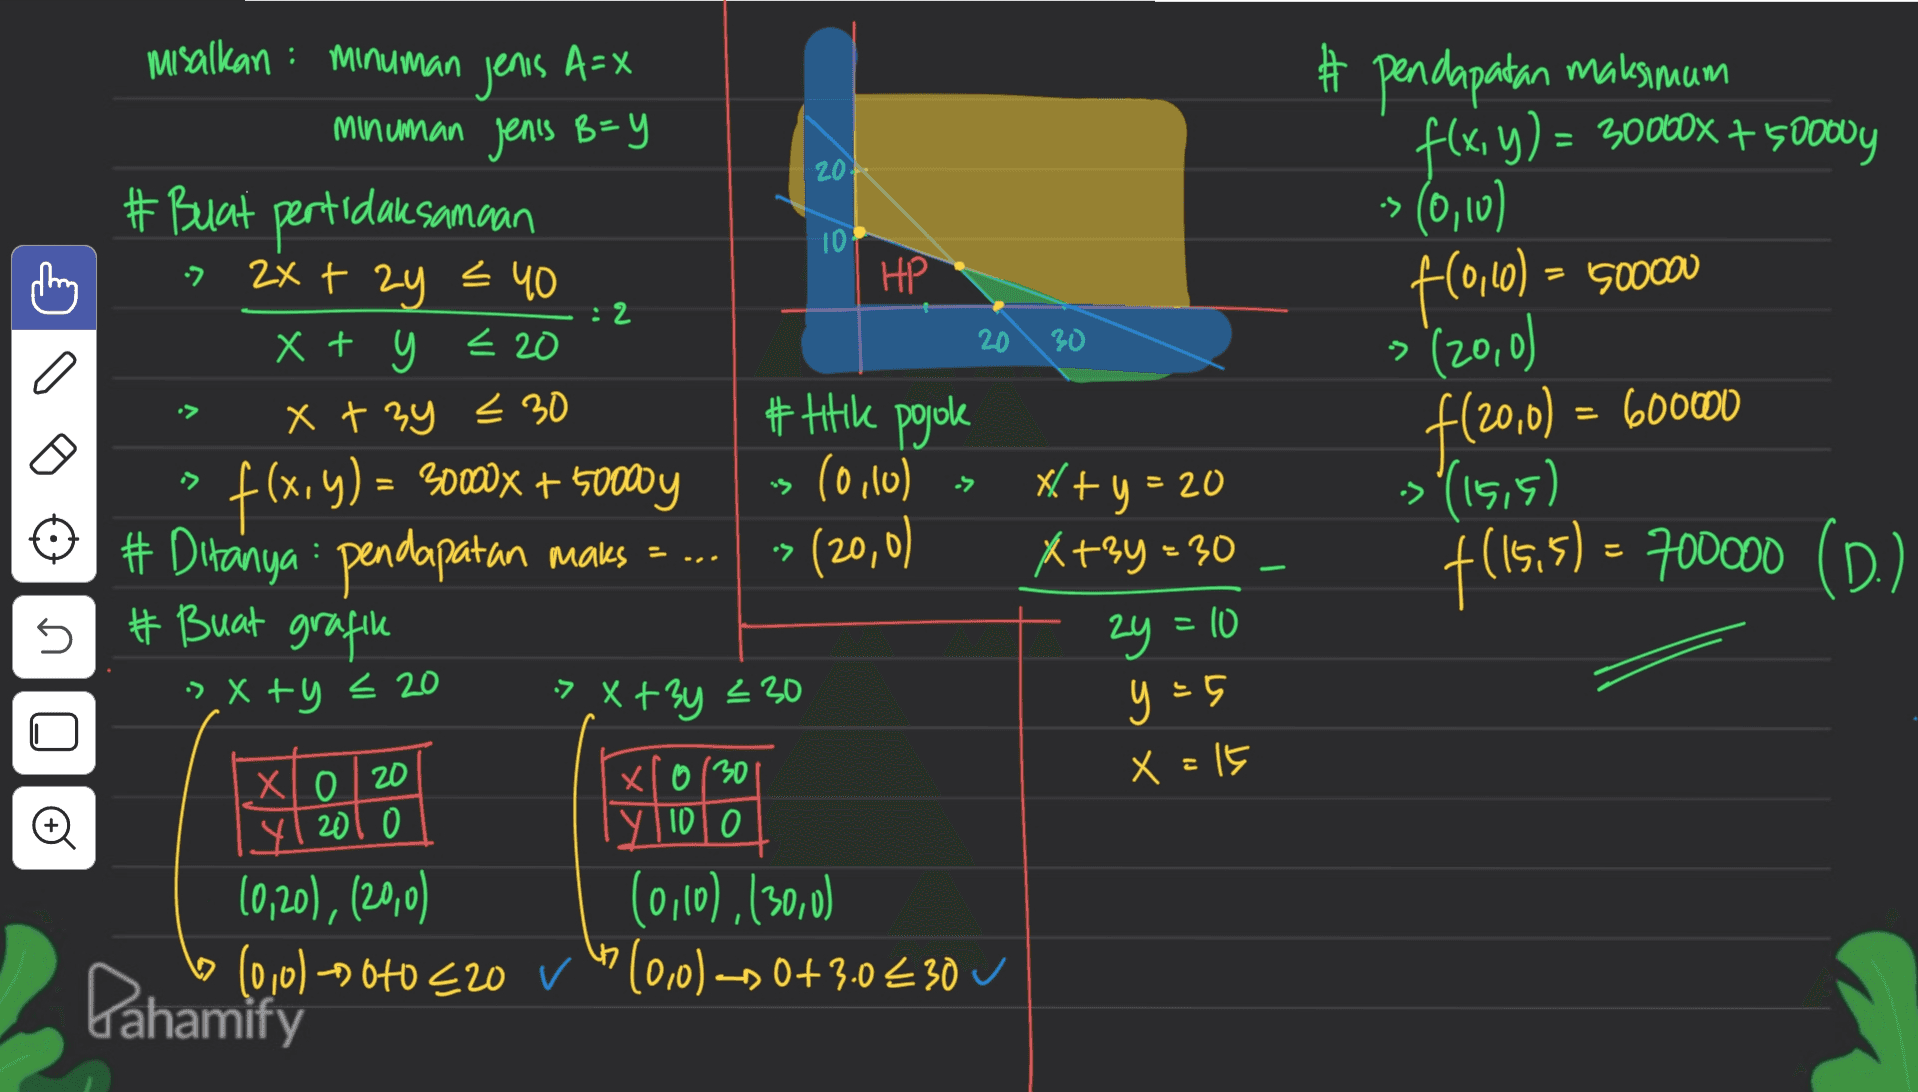 misalkan : minuman jenis A=x
minuman jenis B=y
# Buat pertidaksamaan
-> 2x + 2y ≤ 40
: 2
x + y ≤ 20
-> x + 3y ≤ 30
-> f(x,y) = 30000x + 50000y
# Ditanya : pendapatan maks = ...
# Buat grafik
-> x + y ≤ 20
x 0 20
y 20 0
(0,20), (20,0)
-> (0,0) → 0+0 ≤ 20 ✓
-> x + 3y ≤ 30
x 0 30
y 10 0
(0,10), (30,0)
-> (0,0) → 0+3.0 ≤ 30 ✓
20
10
HP
20 30
# titik pojok
-> (0,10)
-> (20,0)
-> x + y = 20
x + 3y = 30 -
2y = 10
y = 5
x = 15
# pendapatan maksimum
f(x,y) = 30000x + 50000y
-> (0,10)
f(0,10) = 500000
-> (20,0)
f(20,0) = 600000
-> (15,5)
f(15,5) = 700000 (D.)
Pahamify